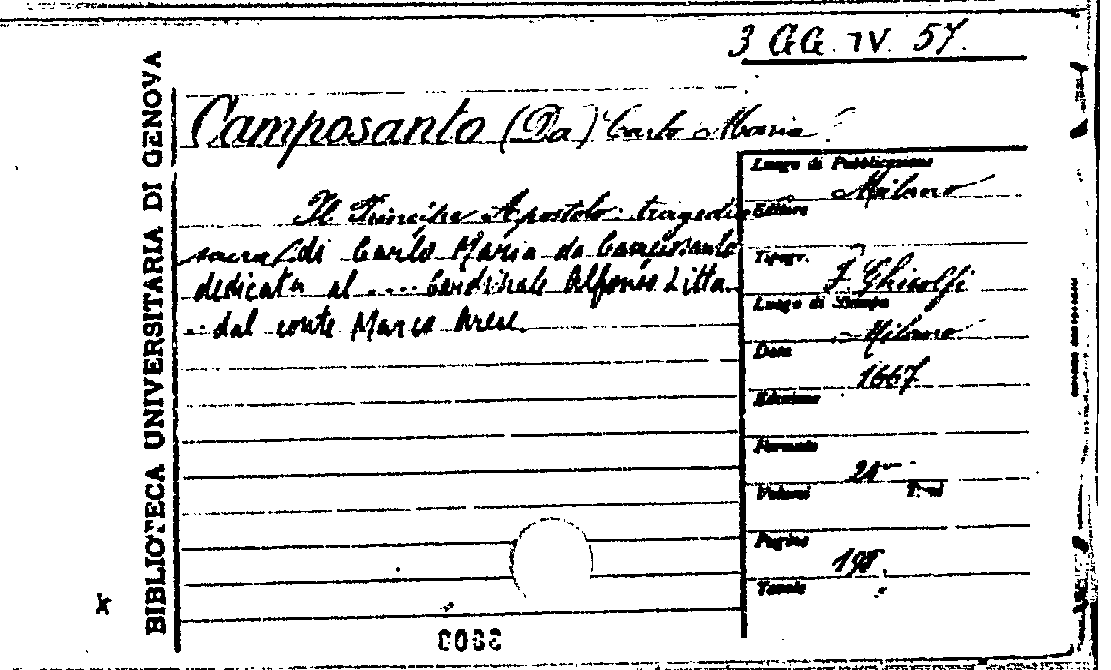 3 GG. IV. 57.
BIBLIOTECA UNIVERSITARIA DI GENOVA
Camposanto (Da) Carlo Maria
Il Principe Apostolo: tragedia
sacra / di Carlo Maria da Camposanto
dedicata al .... Cardinale Alfonso Litta.
.. dal conte Marco Arese.
Luogo di Pubblicazione
Milano
Editore
Tipogr.
F. Ghisolfi
Luogo di Stampa
Milano
Data
1667
Edizione
Formato
Volumi
Tomi
Pagine
Tavole